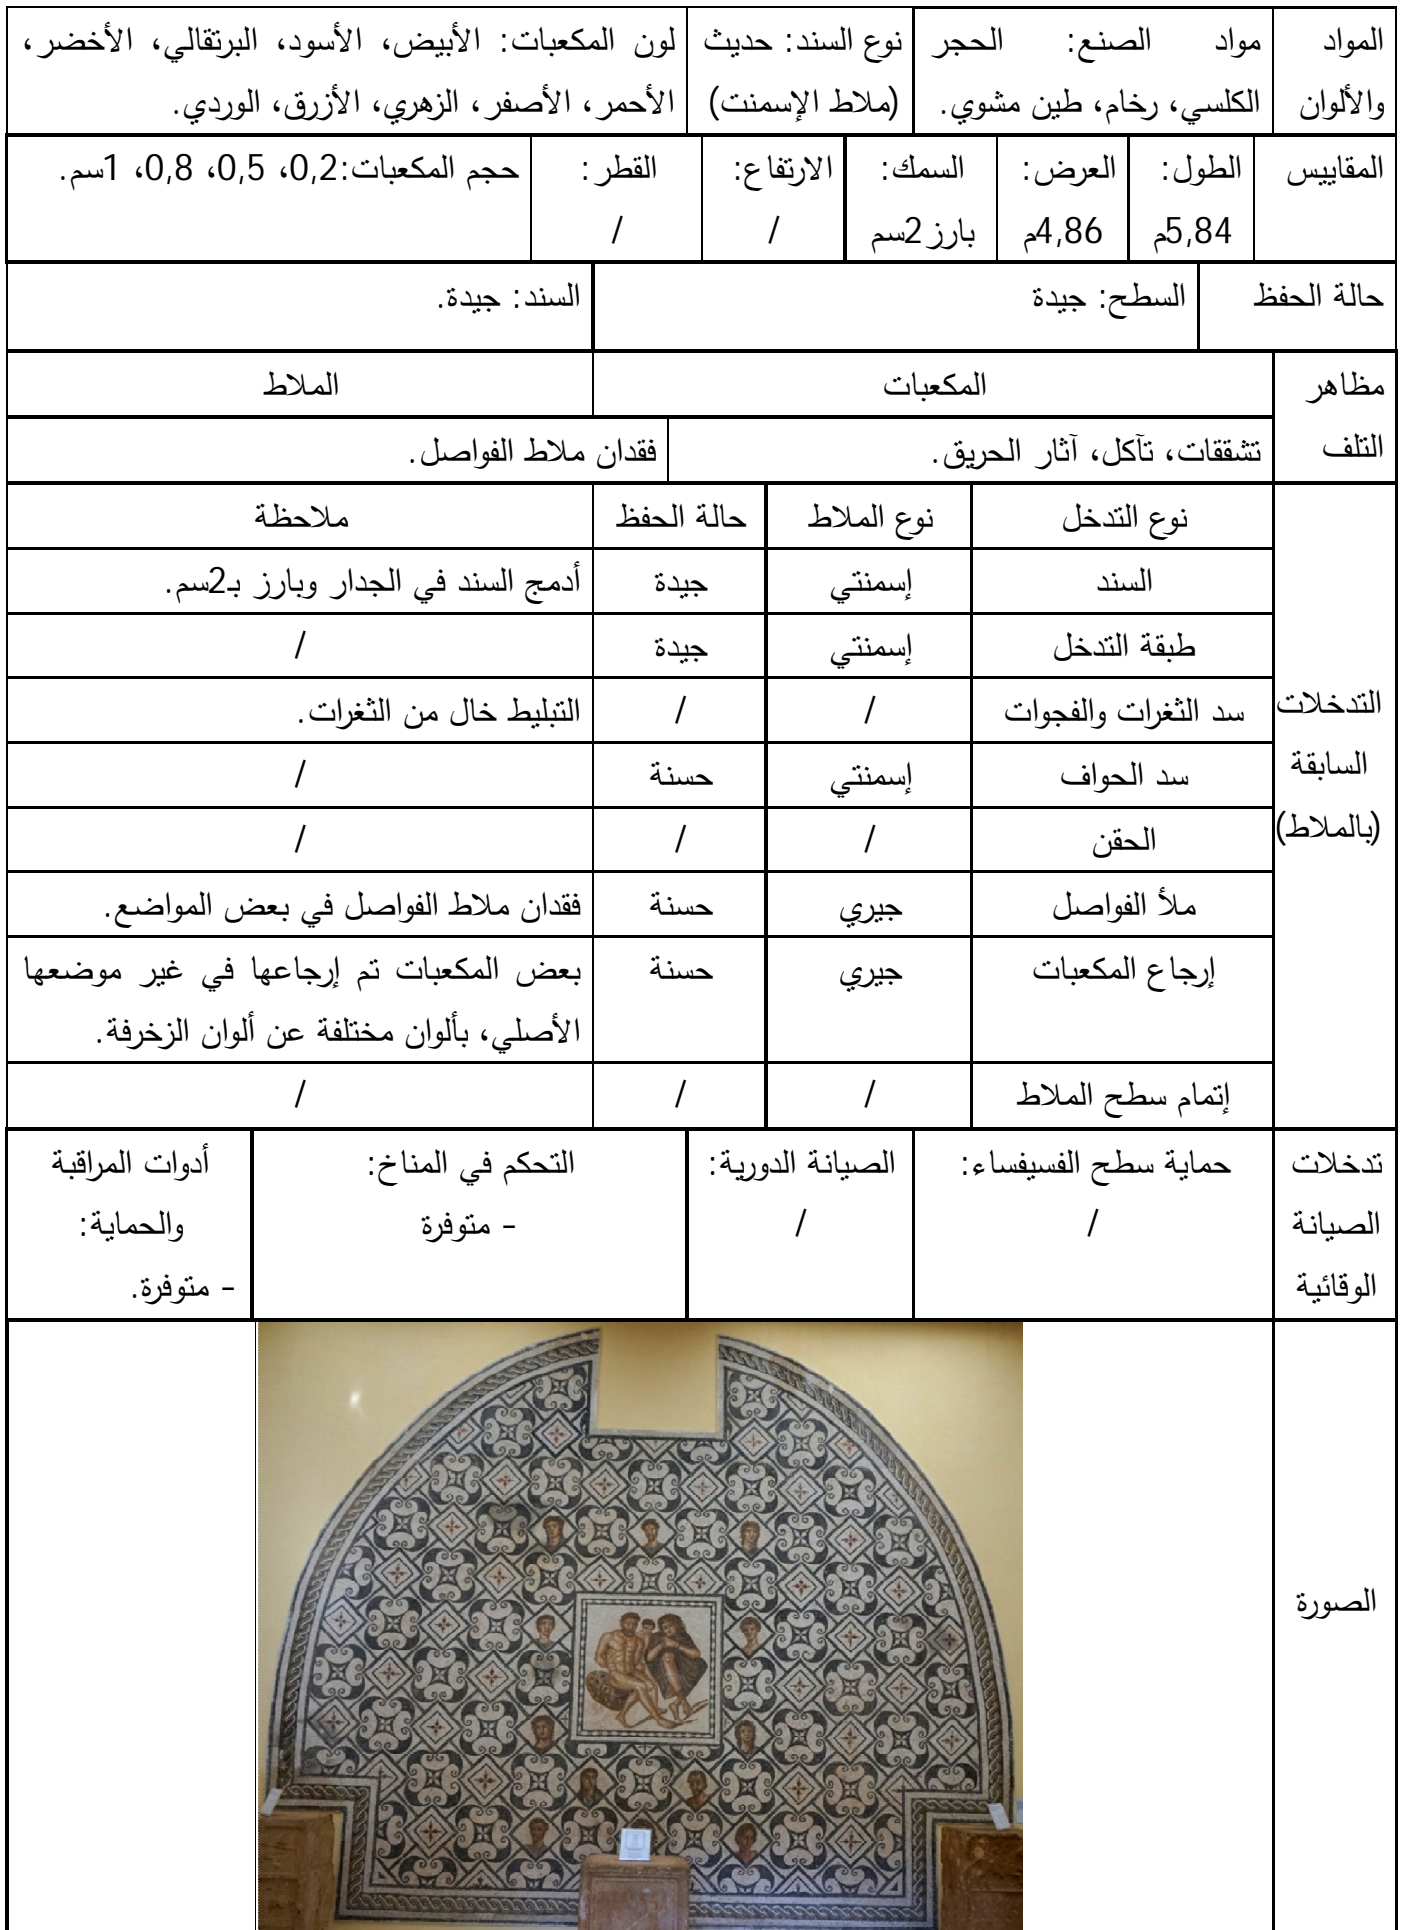 المواد والألوان
مواد الصنع: الحجر الكلسي، رخام، طين مشوي.
نوع السند: حديث (ملاط الإسمنت)
لون المكعبات: الأبيض، الأسود، البرتقالي، الأخضر، الأحمر، الأصفر، الزهري، الأزرق، الوردي.
المقاييس
الطول: 5,84م
العرض: 4,86م
السمك: بارز 2سم
الارتفاع: /
القطر: /
حجم المكعبات:0,2، 0,5، 0,8، 1سم.
حالة الحفظ
السطح: جيدة
السند: جيدة.
مظاهر التلف
المكعبات
الملاط
تشققات، تآكل، آثار الحريق.
فقدان ملاط الفواصل.
التدخلات السابقة (بالملاط)
نوع التدخل
نوع الملاط
حالة الحفظ
ملاحظة
السند
إسمنتي
جيدة
أدمج السند في الجدار وبارز بـ2سم.
طبقة التدخل
إسمنتي
جيدة
/
سد الثغرات والفجوات
/
/
التبليط خال من الثغرات.
سد الحواف
إسمنتي
حسنة
/
الحقن
/
/
/
ملأ الفواصل
جيري
حسنة
فقدان ملاط الفواصل في بعض المواضع.
إرجاع المكعبات
جيري
حسنة
بعض المكعبات تم إرجاعها في غير موضعها
الأصلي، بألوان مختلفة عن ألوان الزخرفة.
إتمام سطح الملاط
/
/
/
تدخلات الصيانة الوقائية
حماية سطح الفسيفساء:
/
الصيانة الدورية:
/
التحكم في المناخ:
- متوفرة
أدوات المراقبة والحماية:
- متوفرة.
الصورة